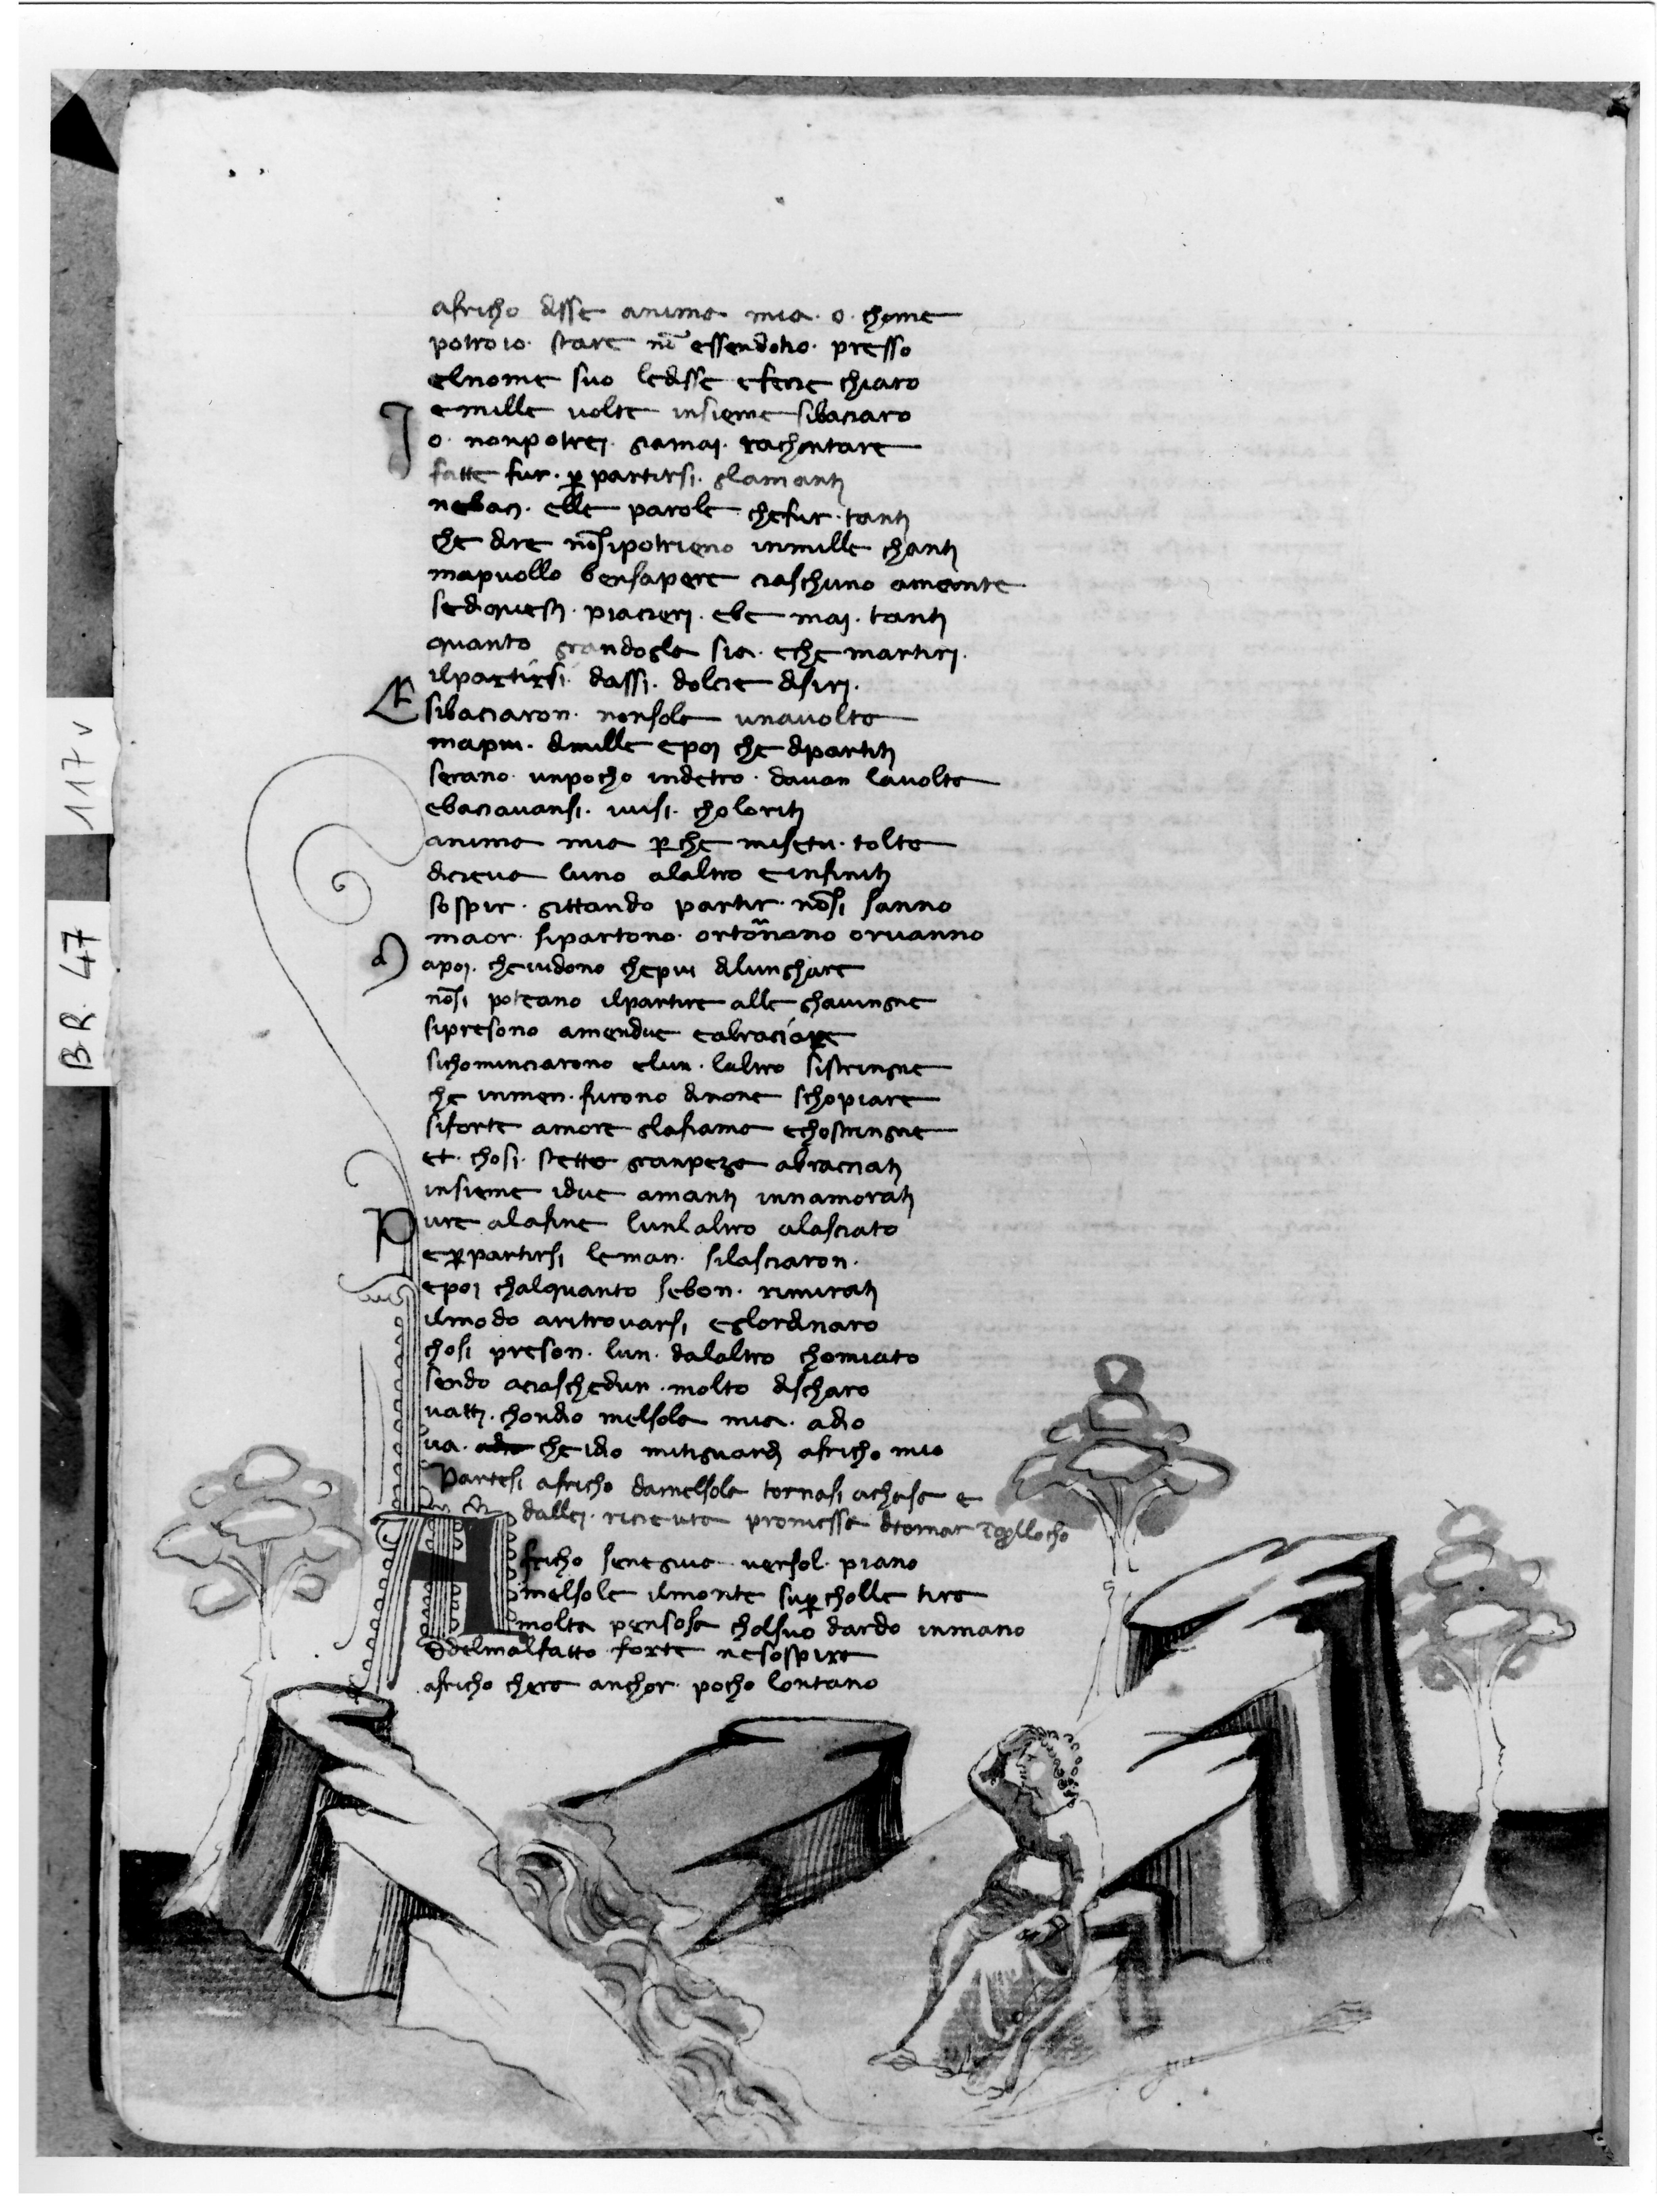 africho disse anima mia · o · chome
potro io · stare nō essendotio · presso
elnome suo ledisse efecie chiaro
emille uolte insieme sibaciaro
Io · nonpotrei · giamai · rachontare
fatte fur · ꝑ partirsi · glamanti
nebaci · elle parole chefur · tanti
che dire nōsipotrieno inmille chanti
mapuollo bensapere ciaschuno amante
sediquesti · piacieri · ebe mai · tanti
quanto grandogla sia · eche martiri ·
ilpartirsi · dassi · dolcie disiri ·
E sibaciaron · nonsola unauolta
mapiu · dimille epoi che dipartiti
serano · unpocho indietro · dauan lauolta
ebaciauansi · iuisi · choloriti
anima mia ꝑche misetu · tolta
diceua luno alaltro einfiniti
sospir · gittando partir · nōsi sanno
maor · sipartono · ortornano oruanno
Mapoi · cheuidono chepiu dilunghare
nōsi poteano ilpartire alle ghauingne
sipresono amendue eabraciare
sichominciarono elun · laltro sistringne
che inmen · furono dinone schopiare
siforte amore glafiama echostringne
et · chosi · stette granpeza abracciati
insieme idue amanti innamorati
Pure alafine lunlaltro alasciato
eꝑpartirsi leman · silasciaron ·
epoi chalquanto sebon · rimirati
ilmodo aritrouarsi eglordinaro
chosi preson · lun · dalaltro chomiato
sendo aciaschedun · molto dischara
uatti · chondio melsola mia · adio
ua · adio che idio mitiguardi africho mio
Partesi africho damelsola tornasi achasa e
dallei · riceuuta promessa ditornar
Africho senegiua uersol · piano
melsola ilmonte suꝑcholle tira
molta pensosa cholsuo dardo inmano
edelmalfatto · forte nesospira
africho chera anchor · pocho lontano
117 v
B.R. 47